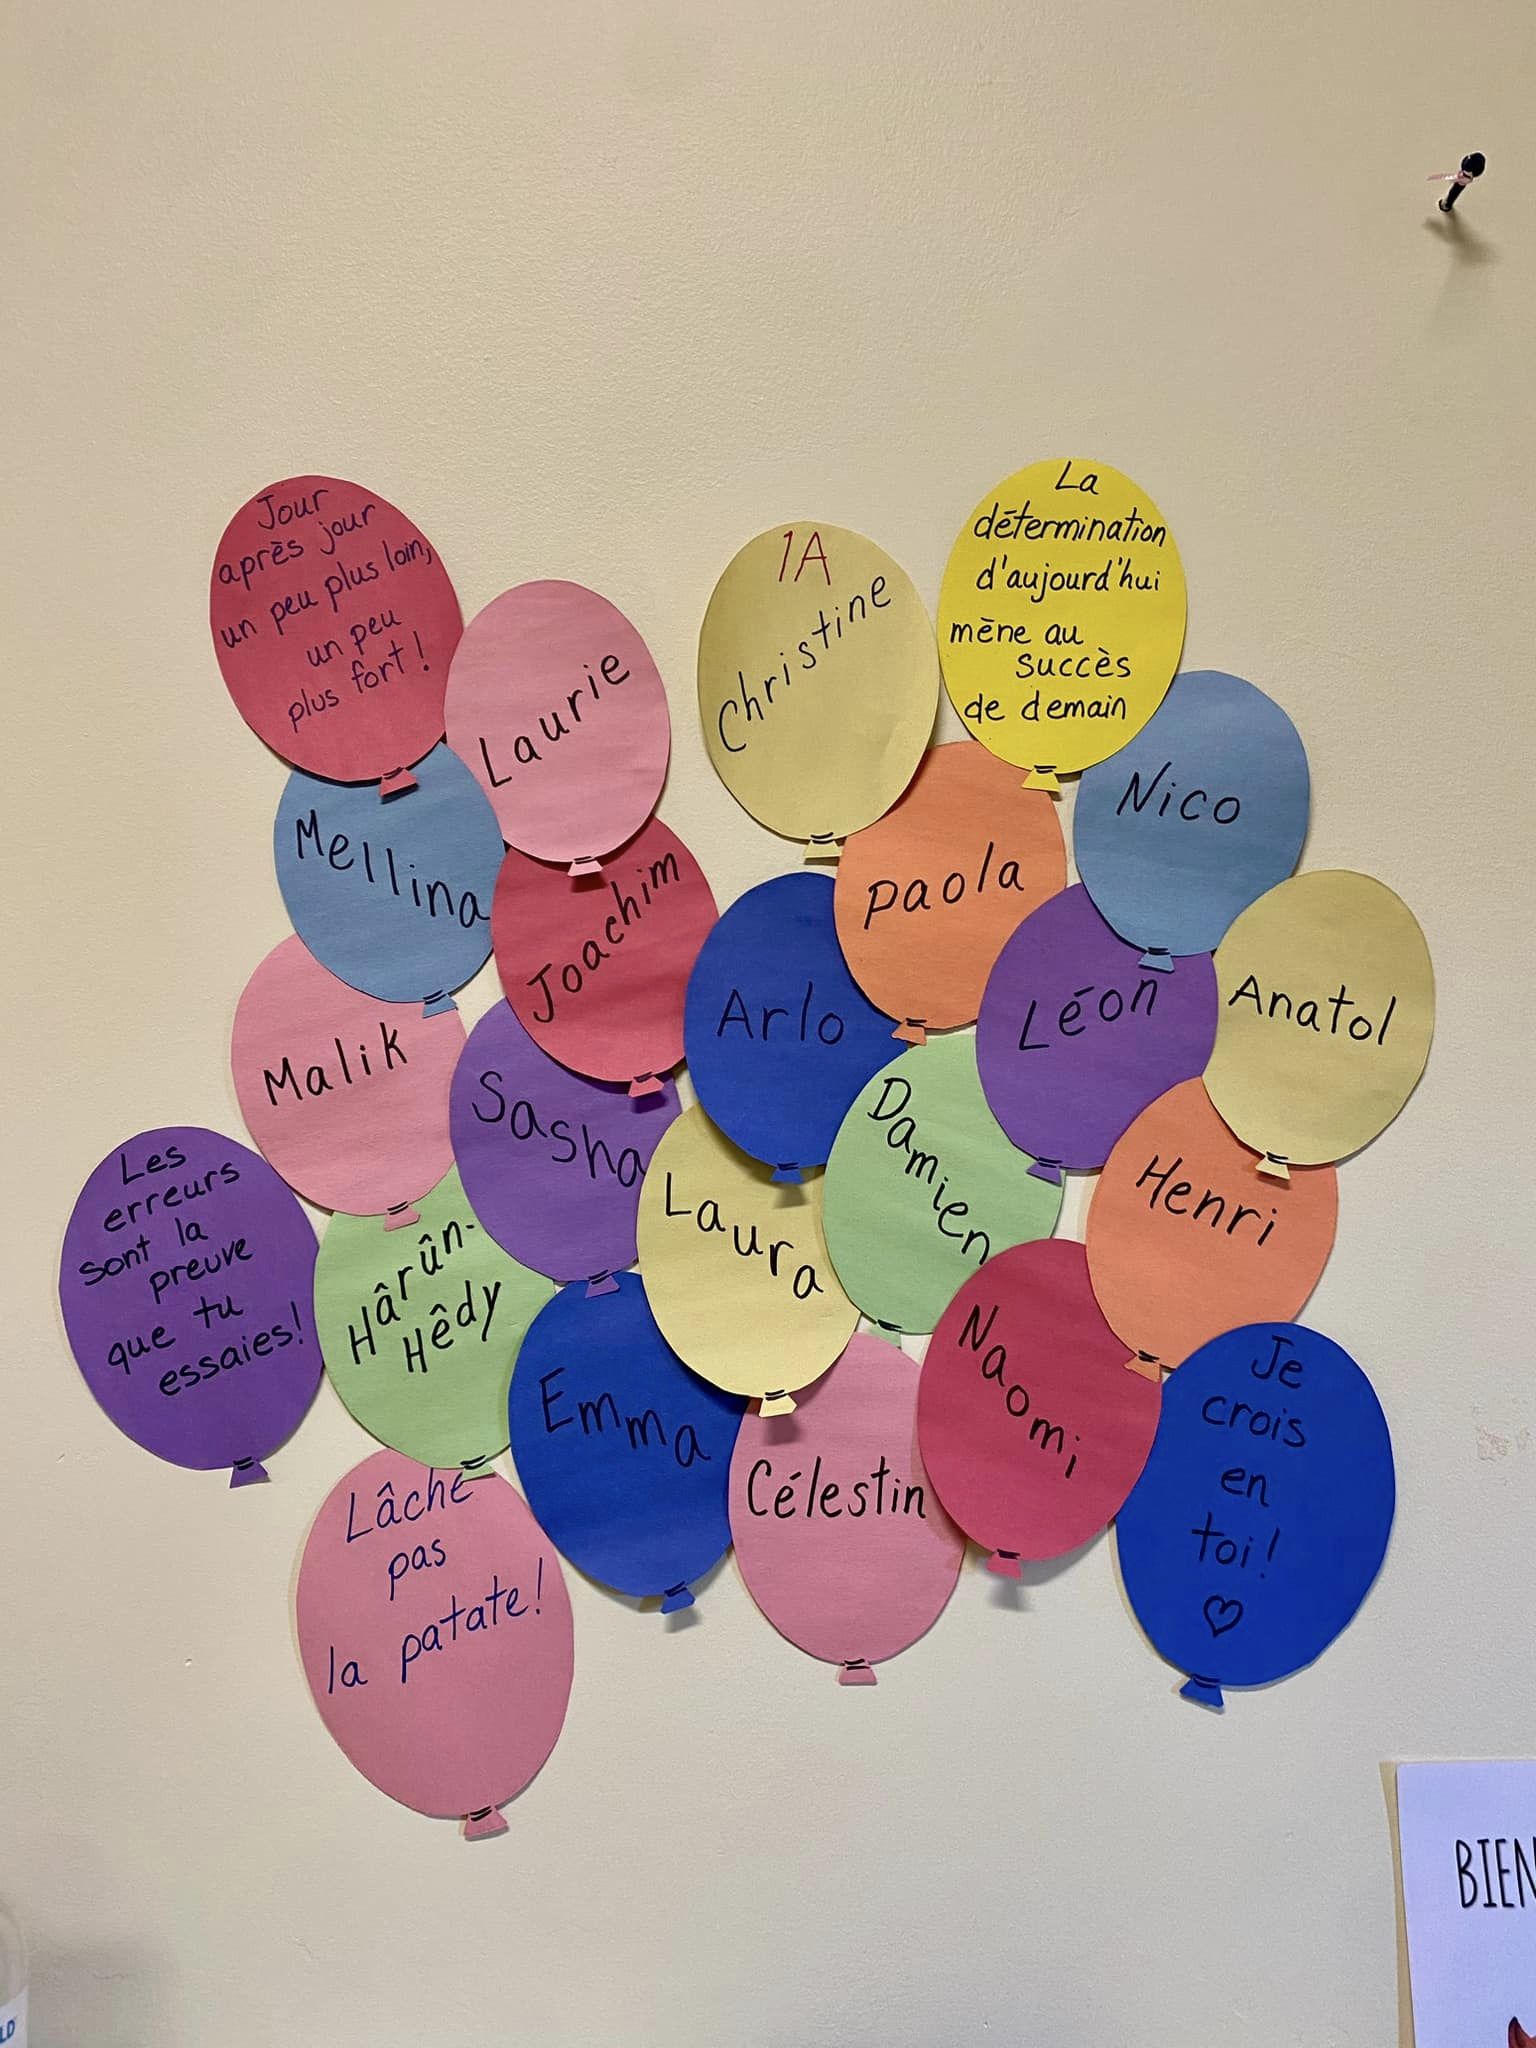 Jour
après jour
un peu plus loin,
un peu
plus fort!
Laurie
1A
Christine
La
détermination
d'aujourd'hui
mène au
succès
de demain
Mellina
Joachim
Paola
Nico
Malik
Sasha
Arlo
Léon
Anatol
Les
erreurs
sont la
preuve
que tu
essaies!
Hârûn-
Hêdy
Laura
Damien
Henri
Emma
Célestin
Naomi
Je
crois
en
toi!
Lâche
pas
la patate!
BIEN
LD